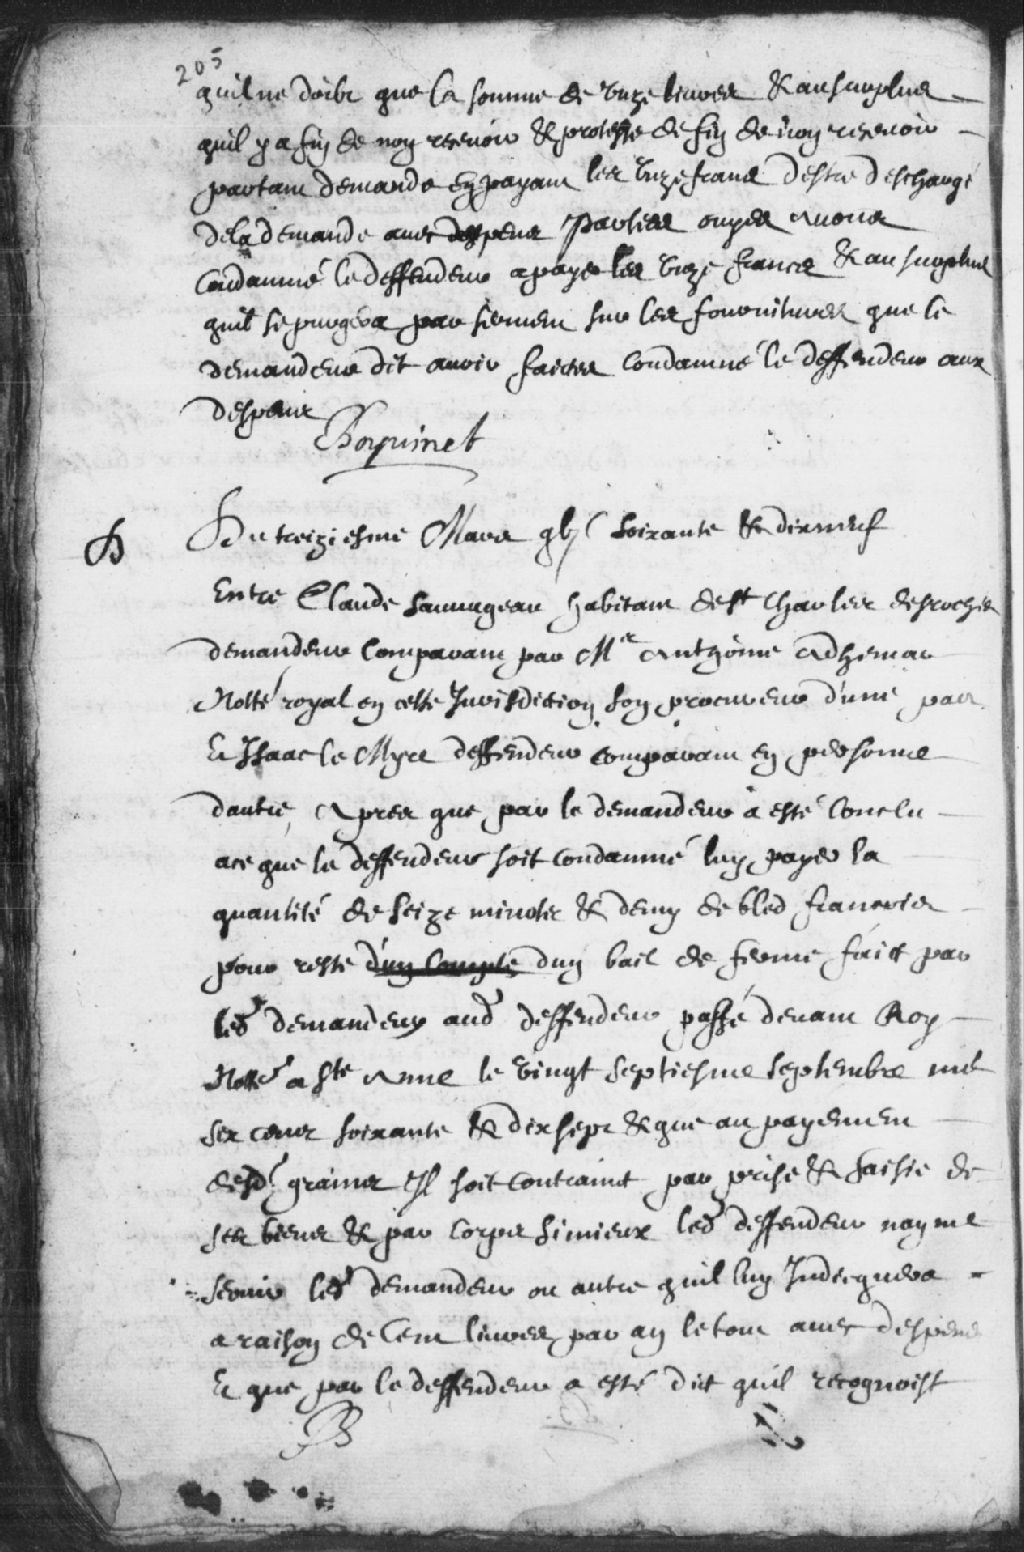 205
quil ne doibt que la somme de unze livres & au surplus
quil y a fin de non recevoir & proteste de fin de non recevoir
partant demande en payant les unze francs destre deschargé
de la demande avec despens Parties ouyes avons
Condamné le deffendeur a payer les unze francs & au surplus
quil se purgera par serment sur les fournitures que le
demandeur dit avoir faictes condamné le deffendeur aux
despens
Boyvinet
Du treiziesme Mars gbjC soixante & dixneuf
Entre Claude Sauvageau habitant de st Charles des roches
demandeur Comparant par Mre Anthoine Adhemar
Nottre royal en cette Jurisdiction son procureur d'une part
Et Isaac le Myre deffendeur comparant en personne
dautre, Apres que par le demandeur a esté Conclu
a ce que le deffendeur soit condamné luy payer la
quantité de seize minots & demy de bled francois
pour reste d'un compte dun bail de ferme faict par
led demandeur aud deffendeur passé devant Roy
Nottre a ste Anne le vingt septiesme septembre mil
six cents soixante & dix sept & que au payement
desd grains Il soit contraint par prise & saisie de
ses biens & par corps si mieux led deffendeur nayme
servir led demandeur ou autre quil luy Indiquera
a raison de Cent livres par an le tout avec despens
Et que par le deffendeur a esté dit quil recognoist
B